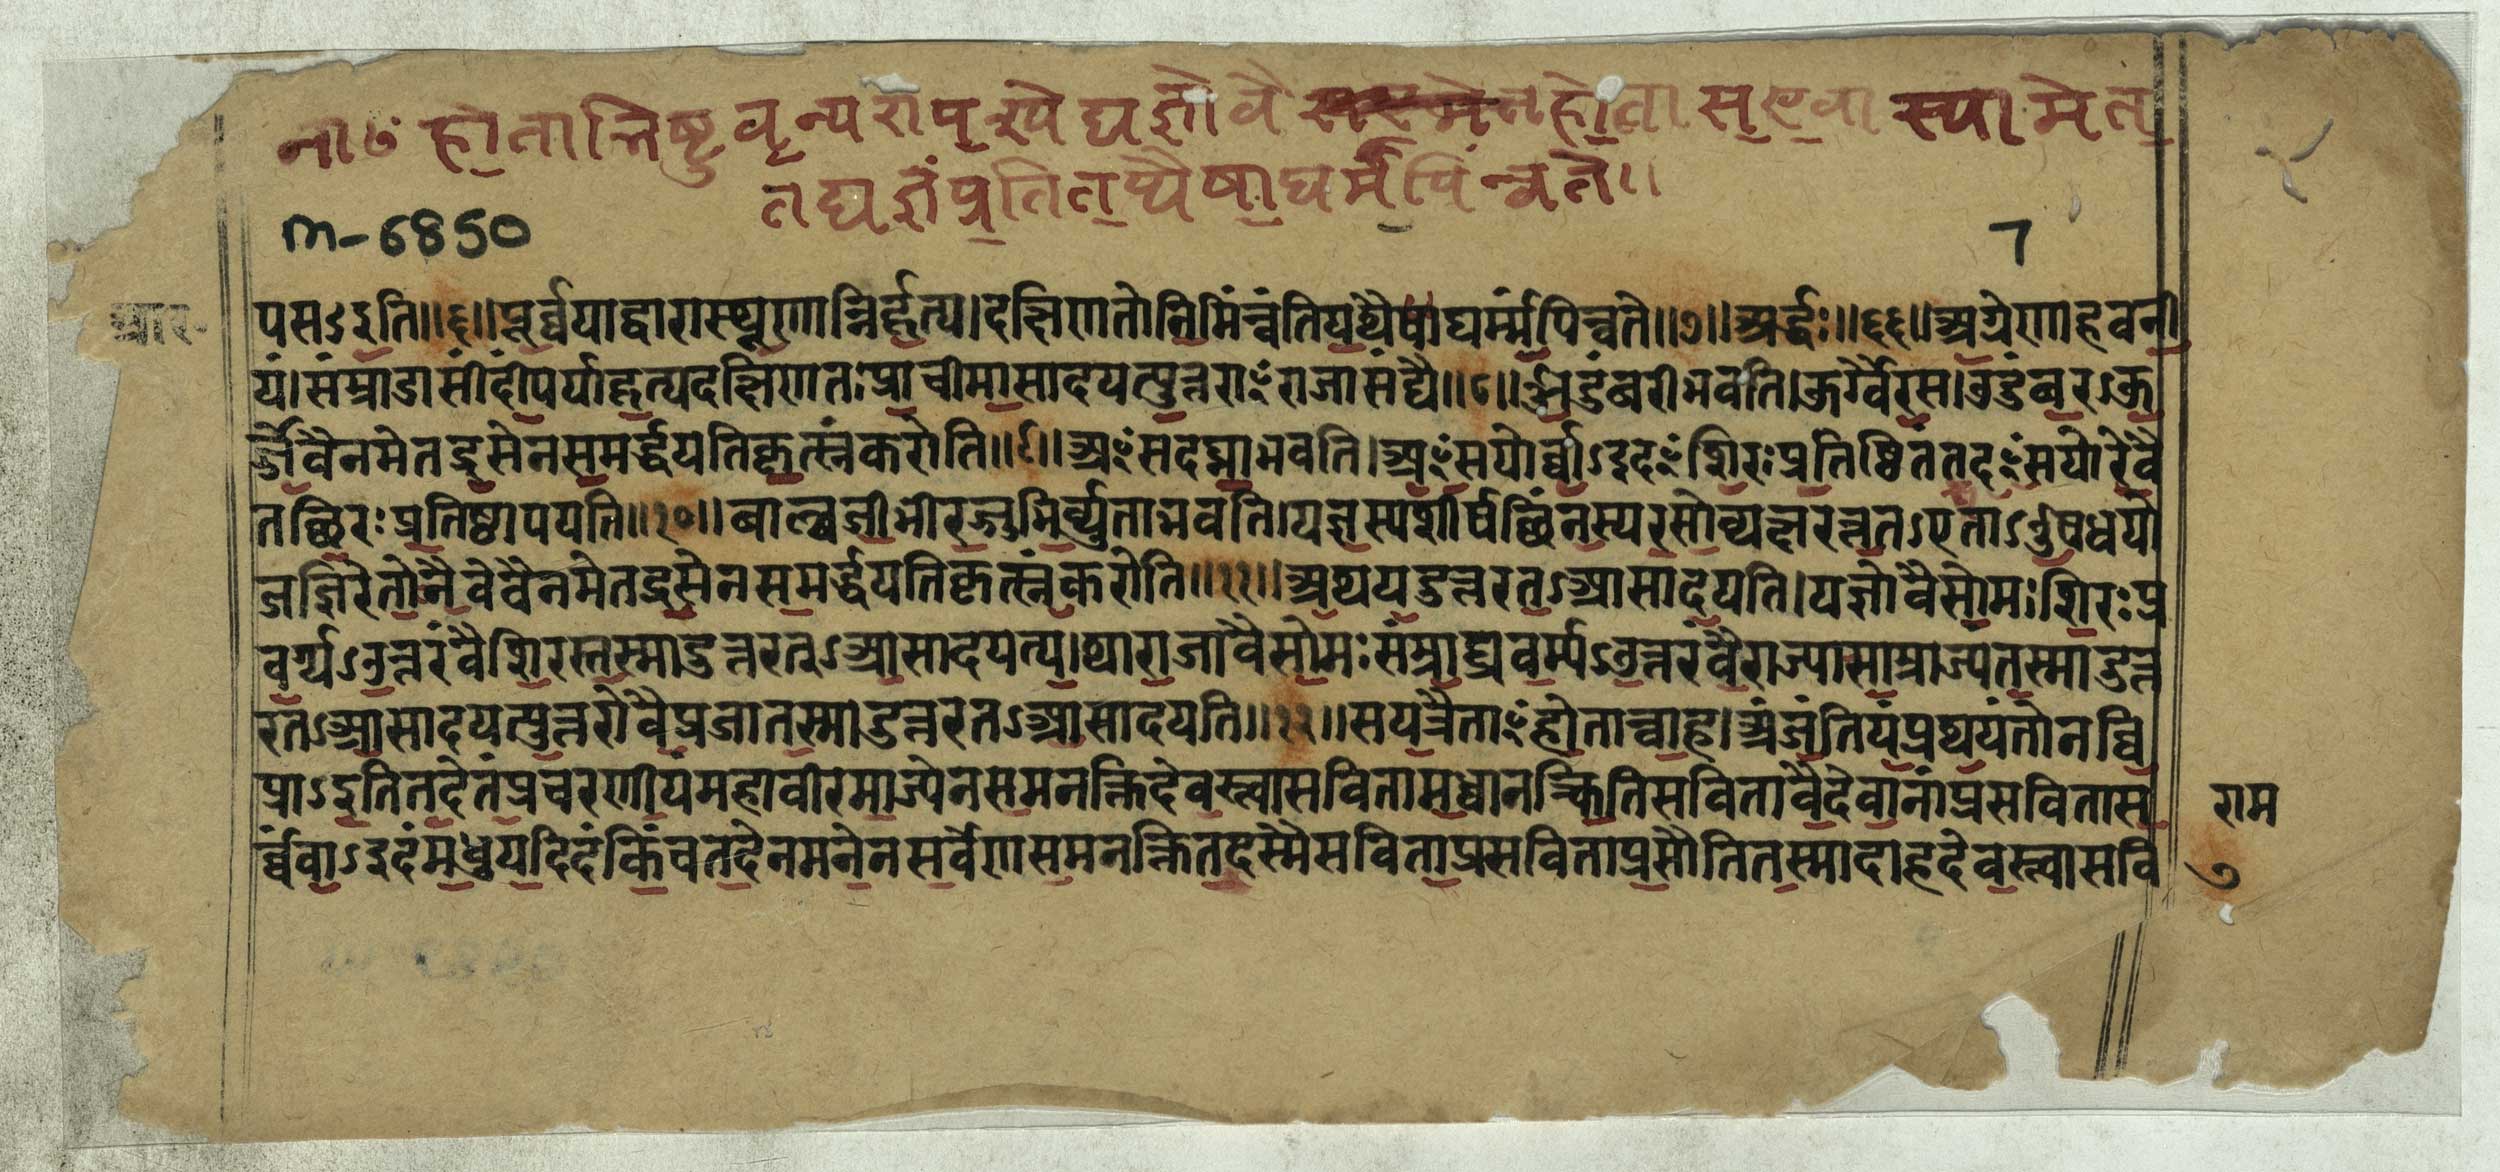 ना७ होतात्रिष्टुवृन्यरापृच्छेद्यज्ञोवै होतासृष्टवास्यामेत्
तद्यज्ञंप्रतितप्यैषाघर्मंपिन्वते॥
m-6850 7
पसऽइति॥६॥पूर्व्वयाद्वारास्थूणान्निर्हृत्य।दक्षिणतोनिमिंन्वंतियथैषाघर्म्मंपिन्वते॥७॥अर्द्धः॥६६॥अग्रेणाहवनी
यं।संम्राडासींदींपर्याहृत्यदक्षिणतःप्राचीमासादयत्युत्तराꣳराजासंद्यै॥८॥औडुंबरीभवति।ऊर्ग्वैरस।उडुंबरऽऊ
र्ज्जैवैनमेतद्रसेनसमर्द्धयतिकृत्स्नंकरोति॥९॥अꣳसदघ्नाभवति।अꣳसयोर्व्वाऽइदꣳशिरःप्रतिष्ठितंतदꣳसयोरेवै
तच्छिरःप्रतिष्ठापयति॥१०॥बाल्वजीभीरज्जुभिर्व्युताभवति।यज्ञस्यशीर्षच्छिंनस्यरसोव्यक्षरत्ततऽएताऽओषधयो
जज्ञिरेतेनैवेवैनमेतद्रसेनसमर्द्धयतिकृत्स्नंकरोति॥११॥अथयदुत्तरतऽआसादयति।यज्ञोवैसोमःशिरःप्र
वर्ग्यऽउत्तरंवैशिरस्तस्मादुत्तरतऽआसादयत्य।थाराजावैसोमःसंम्राट्प्रवर्ग्यऽउत्तरंवैराज्यासाम्राज्यंतस्मादुत्त
रतऽआसादयत्युत्तरोवैप्रजातस्मादुत्तरतऽआसादयति॥१२॥सयत्रैताꣳहोतान्वाह।अंजंतियंप्रथयंतोनवि
प्राऽइतितदेतंप्रचरणीयंमहावीरमाज्येनसमनक्तिदेवस्त्वासवितामध्वानक्त्वितिसवितावैदेवानांप्रसवितास
र्व्वंवाऽइदंमधुयदिदंकिंचतदेनमनेनसर्वेणसमनक्तितदस्मैसविताप्रसविताप्रसौतितस्मादाहदेवस्त्वासवि
राम
७